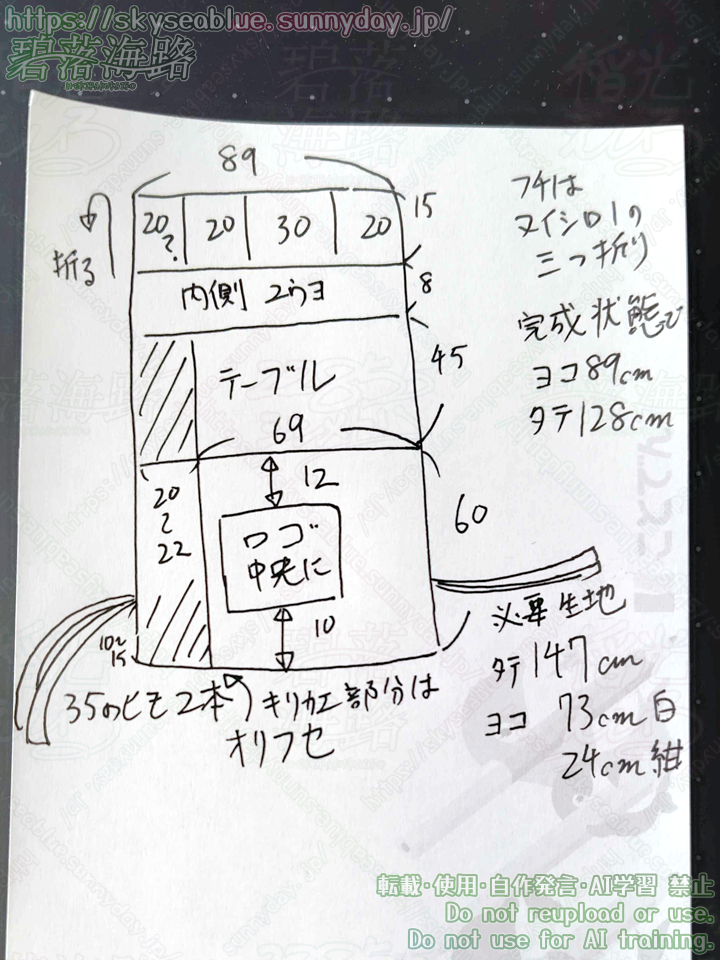 https://skyseablue.sunnyday.jp/
碧落海路
89
折る
20?
20
30
20
15
内側 ユウヨ
8
テーブル
45
69
12
20
〜
22
ロゴ
中央に
60
10
10〜
15
35のヒモ2本
キリカエ部分は
オリフセ
フチは
ヌイシロ1の
三つ折り
完成状態で
ヨコ89cm
タテ128cm
必要生地
タテ147cm
ヨコ 73cm白
24cm紺
転載・使用・自作発言・AI学習 禁止
Do not reupload or use.
Do not use for AI training.